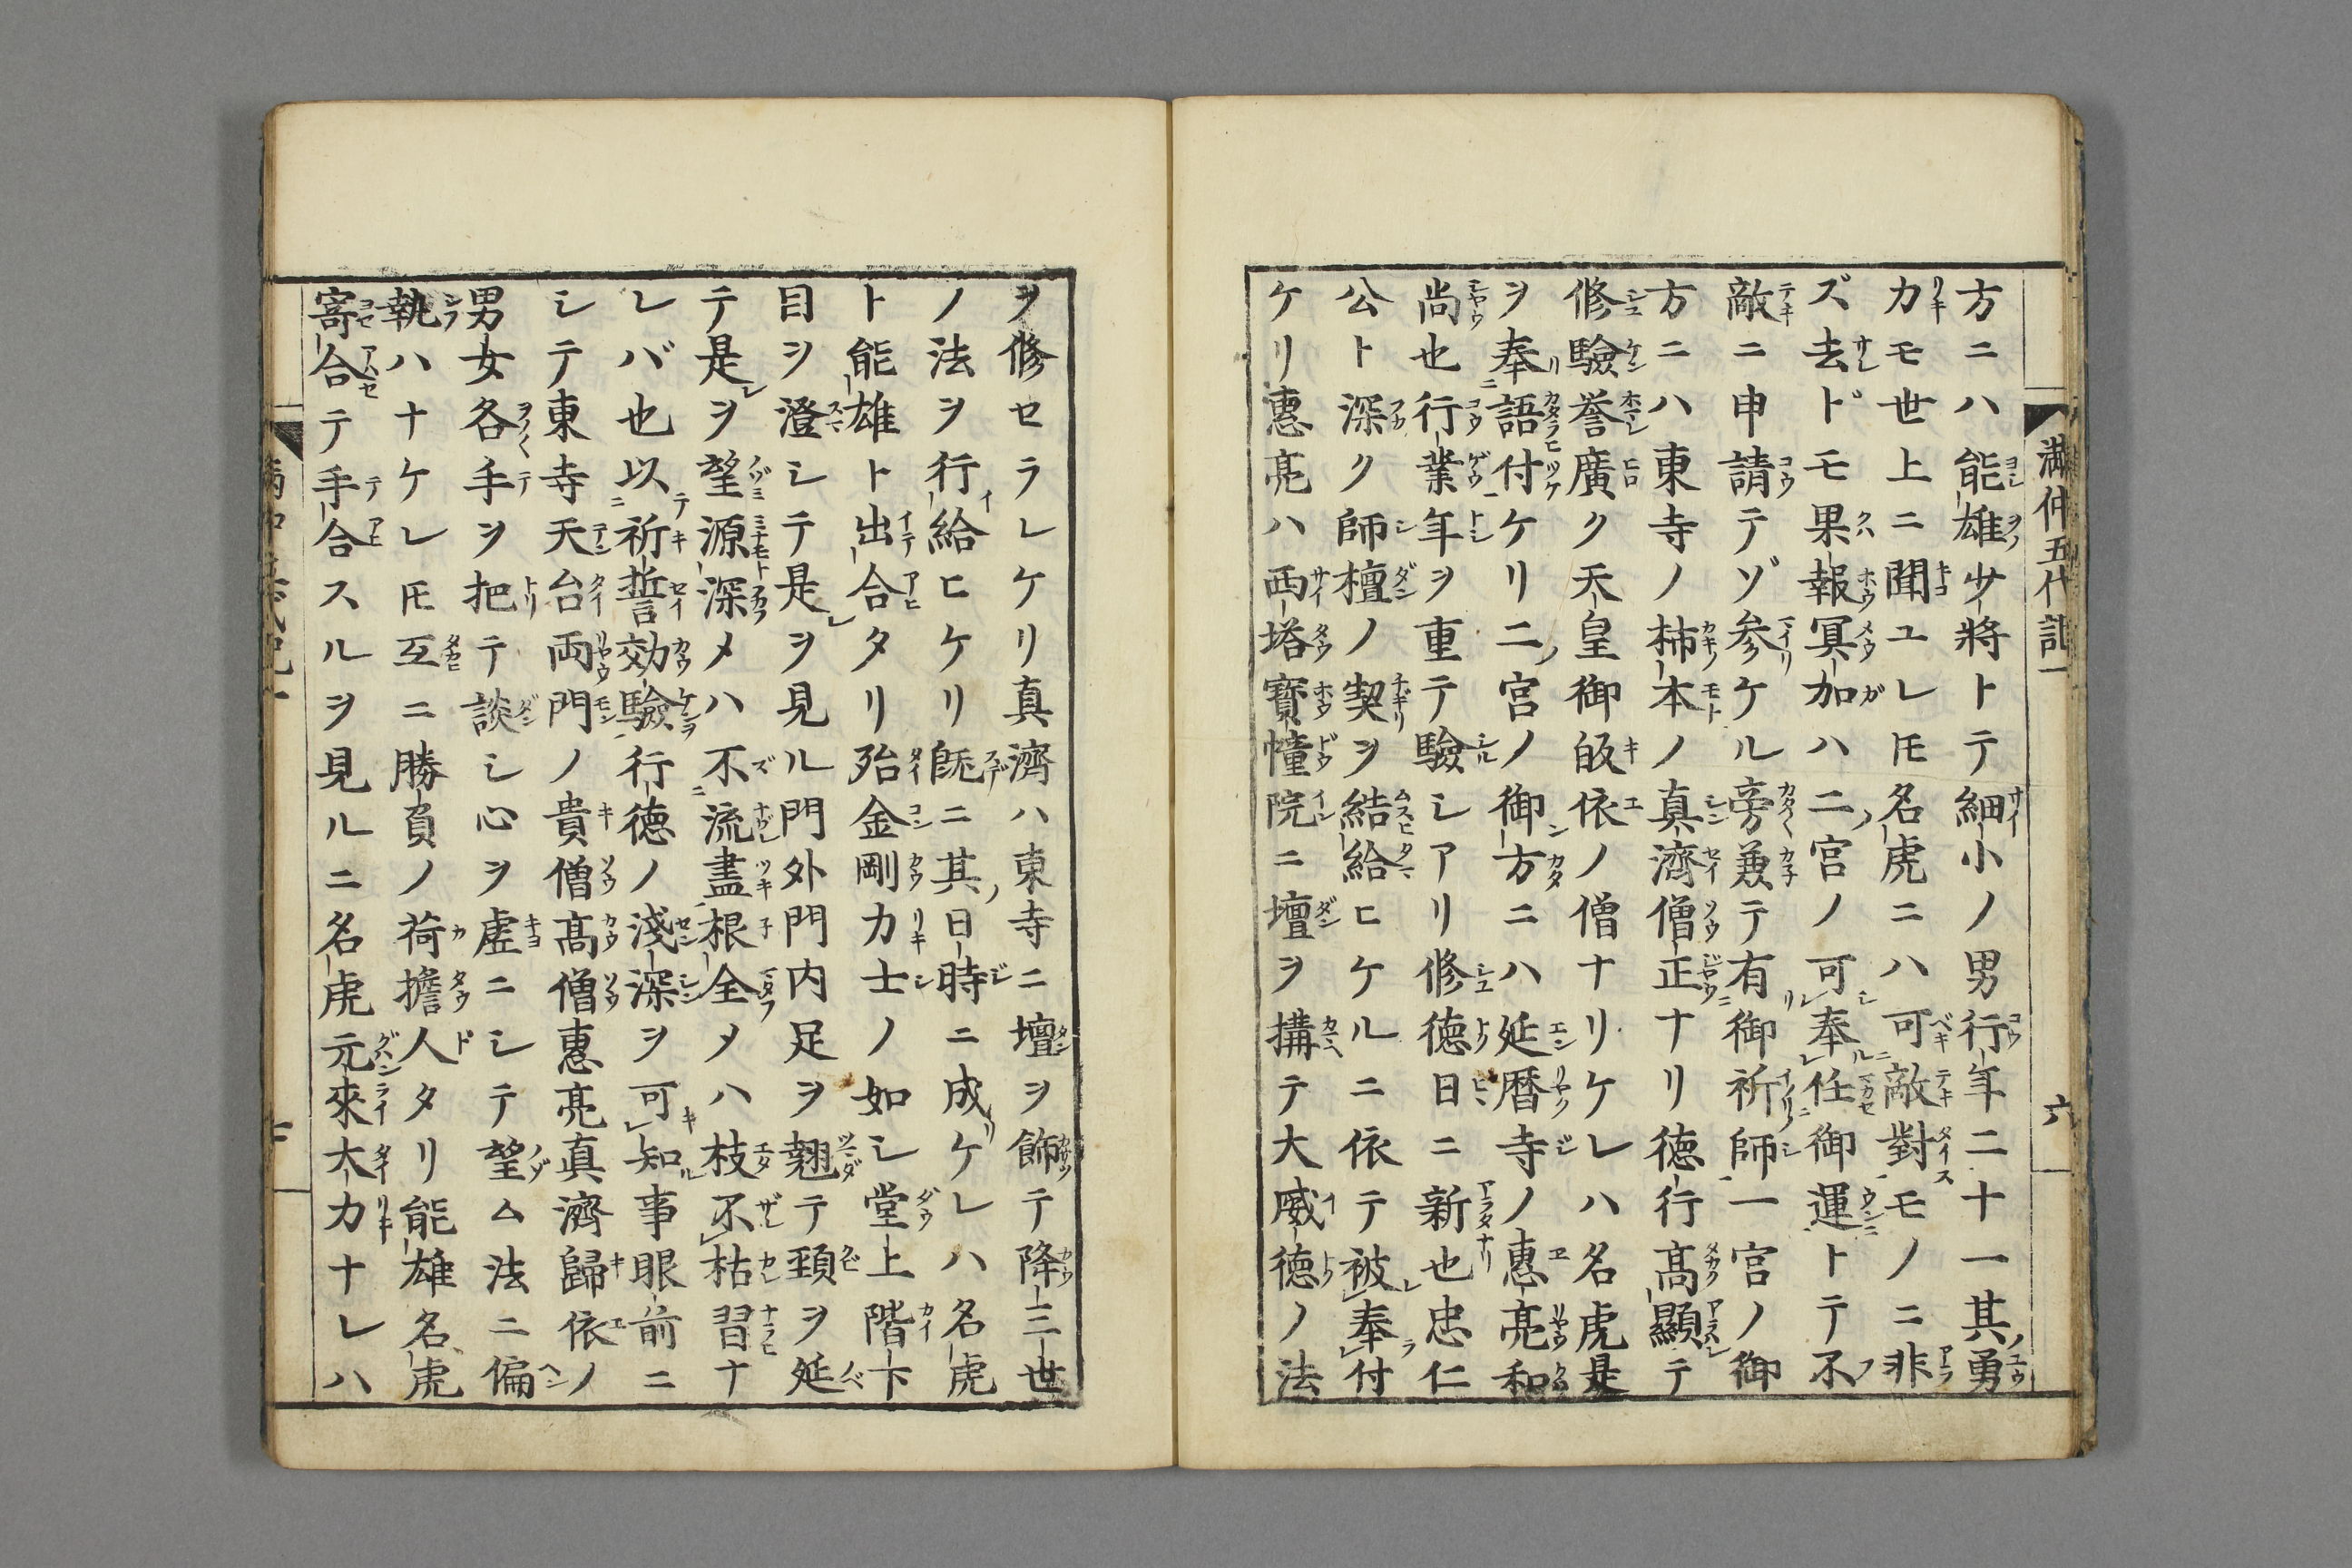 満仲五代記一　六
方ニハ能雄少將トテ細小ノ男行年二十一其勇
力モ世上ニ聞ユレ𪜈名虎ニハ可敵對モノニ非
ズ去ドモ果報冥加ハ二宮ノ可奉任御運トテ不
敵ニ申請テゾ参ケル旁兼テ有御祈師一宮ノ御
方ニハ東寺ノ柿本ノ真濟僧正ナリ徳行髙顯テ
修驗誉廣ク天皇御皈依ノ僧ナリケレハ名虎是
ヲ奉語付ケリ二宮ノ御方ニハ延暦寺ノ惠亮和
尚也行業年ヲ重テ驗シアリ修徳日ニ新也忠仁
公ト深ク師檀ノ契ヲ結給ヒケルニ依テ被奉付
ケリ惠亮ハ西塔寳幢院ニ壇ヲ搆テ大威徳ノ法
ヲ修セラレケリ真濟ハ東寺ニ壇ヲ飾テ降三世
ノ法ヲ行給ヒケリ既ニ其日時ニ成ケレハ名虎
ト能雄ト出合タリ殆金剛力士ノ如シ堂上階下
目ヲ澄シテ是ヲ見ル門外門内足ヲ翹テ頚ヲ延
テ是ヲ望源深メハ不流盡根全メハ枝不枯習ナ
レバ也以祈誓効驗行徳ノ淺深ヲ可知事眼前ニ
シテ東寺天台両門ノ貴僧髙僧惠亮真濟歸依ノ
男女各手ヲ把テ談シ心ヲ虚ニシテ望ム法ニ偏
執ハナケレ𪜈互ニ勝負ノ荷擔人タリ能雄名虎
寄合テ手合スルヲ見ルニ名虎元來大力ナレハ